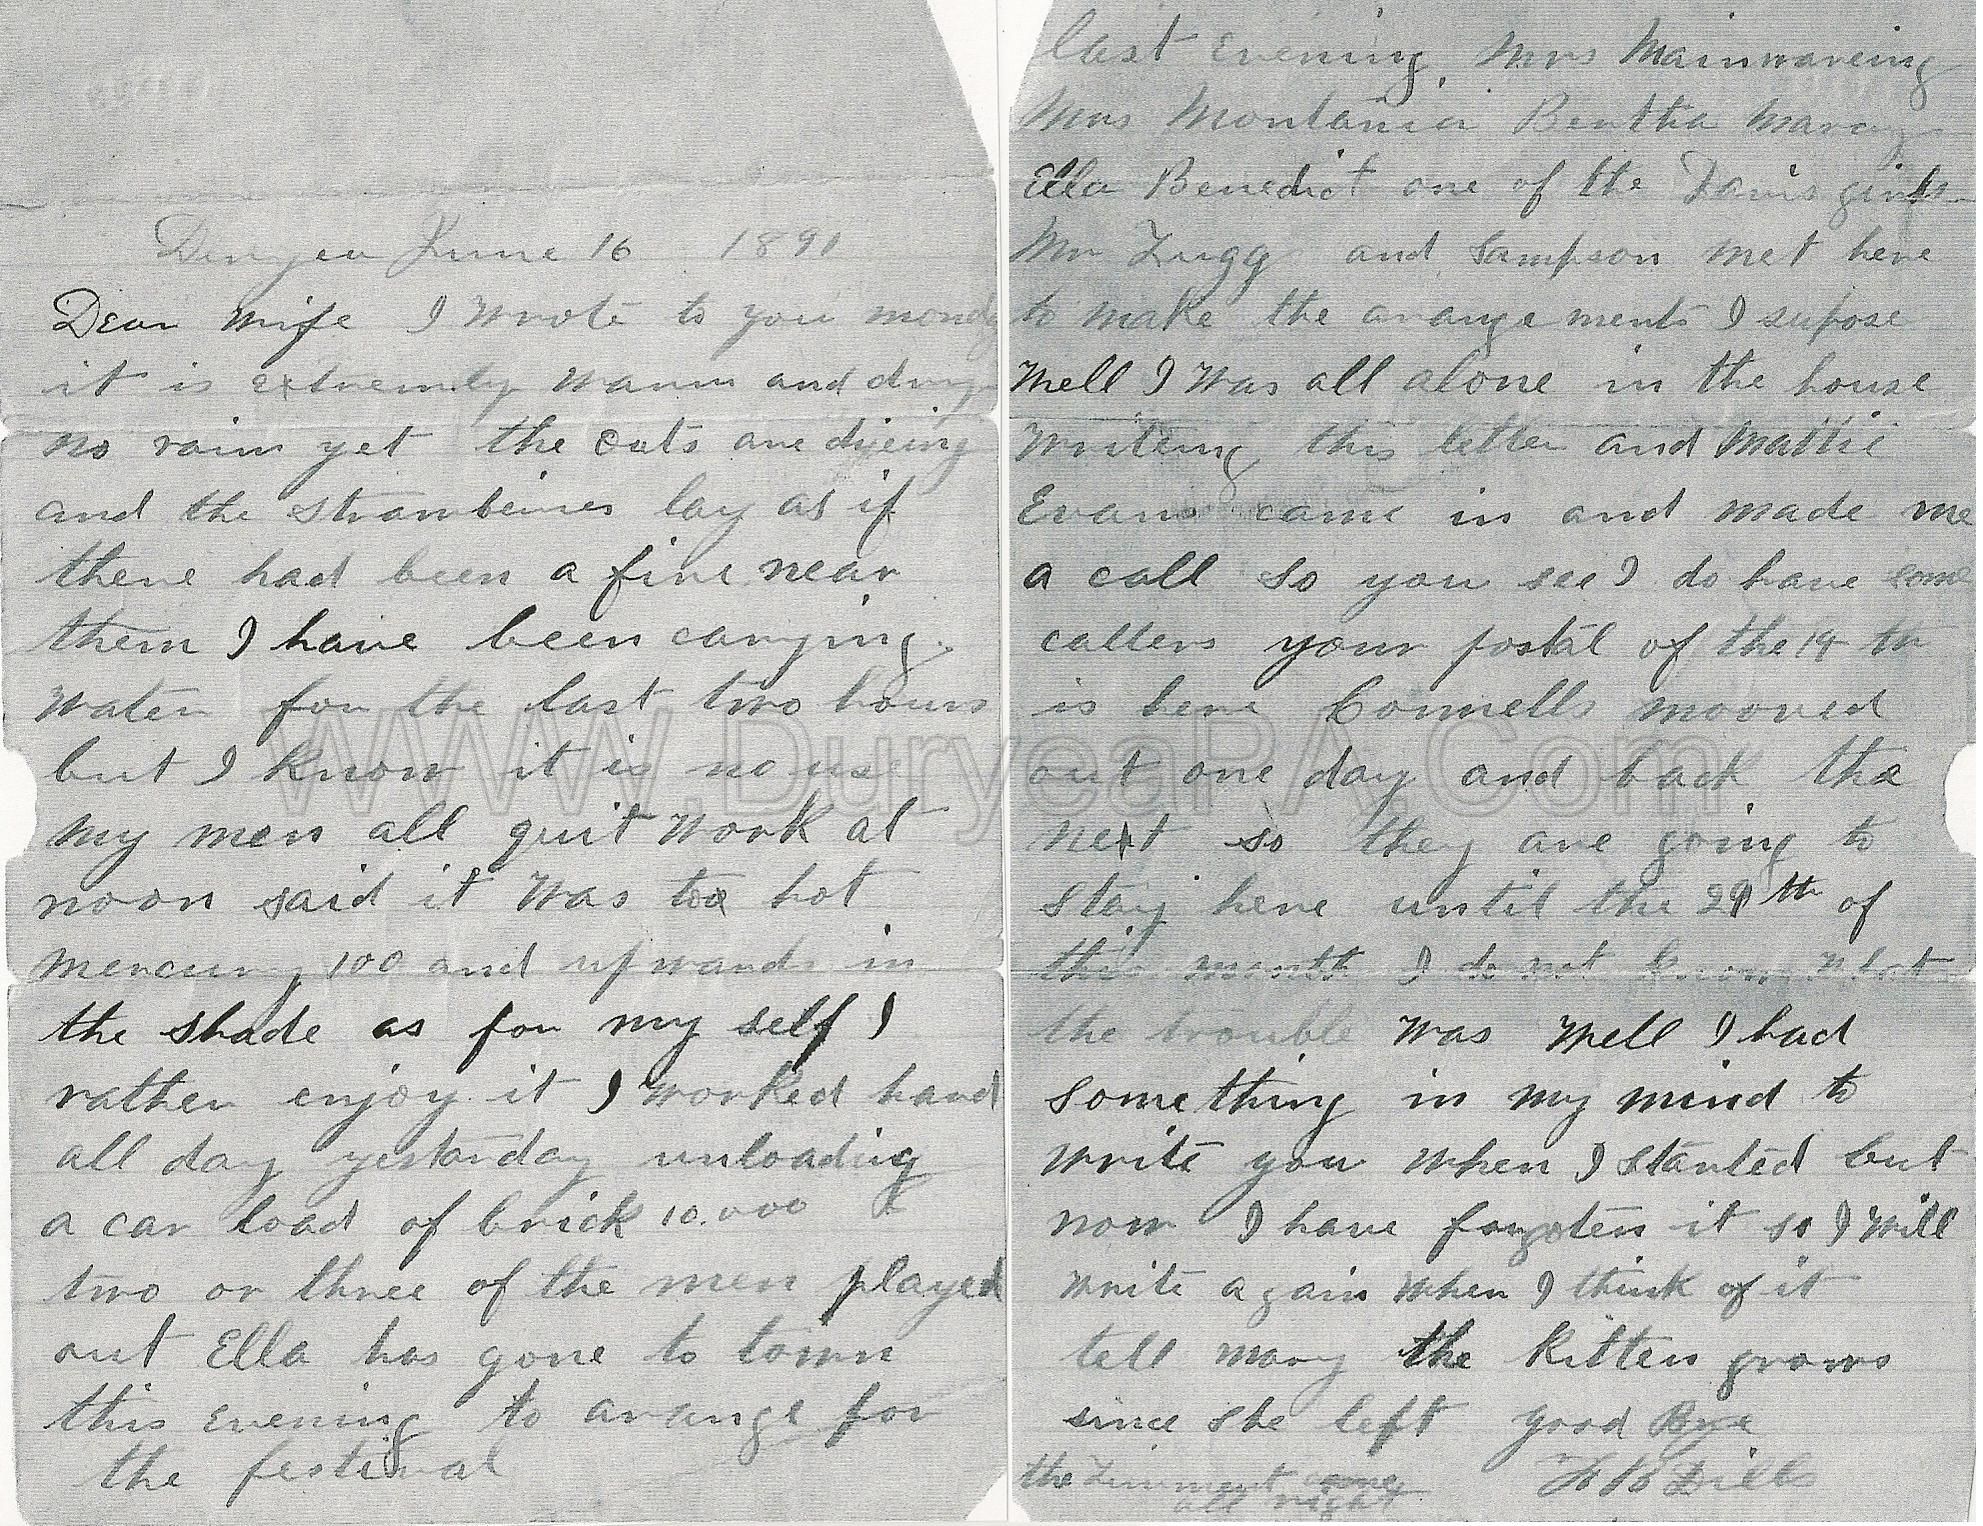 Duryea June 16 1891
Dear Wife I Wrote to you monday
it is extremely Warm and drug
no rain yet the oats are dyeing
and the strawberries lay as if
there had been a fire near
them I have been carying
Water for the last two hours
but I know it is no use
my men all quit Work at
noon said it Was too hot
mercury 100 and upwards in
the shade as for my self I
rather enjoy it I worked hard
all day yesterday unloading
a car load of brick 10.000
two or three of the men played
out Ella has gone to town
this evening to arange for
the festival
last evening Mrs Mainwareing
Mrs Montania Bertha Marcy
Ella Benedict one of the Davis girls
Mr Zugg and Sampson met here
to make the arangements I supose
Well I Was all alone in the house
Writeing this letter and Mattie
Evans came in and made me
a call so you see I do have some
callers your postal of the 14 th
is here Connells mooved
out one day and back the
next so they are going to
stay here until the 29th of
this month I do not know What
the trouble Was Well I had
something in my mind to
Write you When I started but
now I have forgoten it so I Will
Write again When I think of it
tell mary the Kitten grows
since she left good Bye
the Liniment came
all right
Dills
www.DuryeaPA.Com